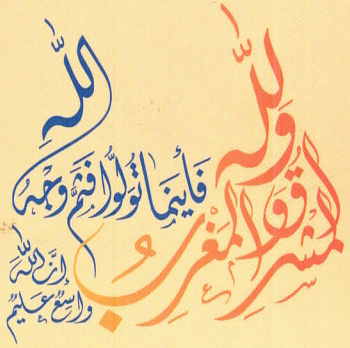 وَلِلَّهِ
الْمَشْرِقُ وَالْمَغْرِبُ
فَأَيْنَمَا تُوَلُّوا فَثَمَّ وَجْهُ
اللَّهِ
إِنَّ اللَّهَ
وَاسِعٌ عَلِيمٌ